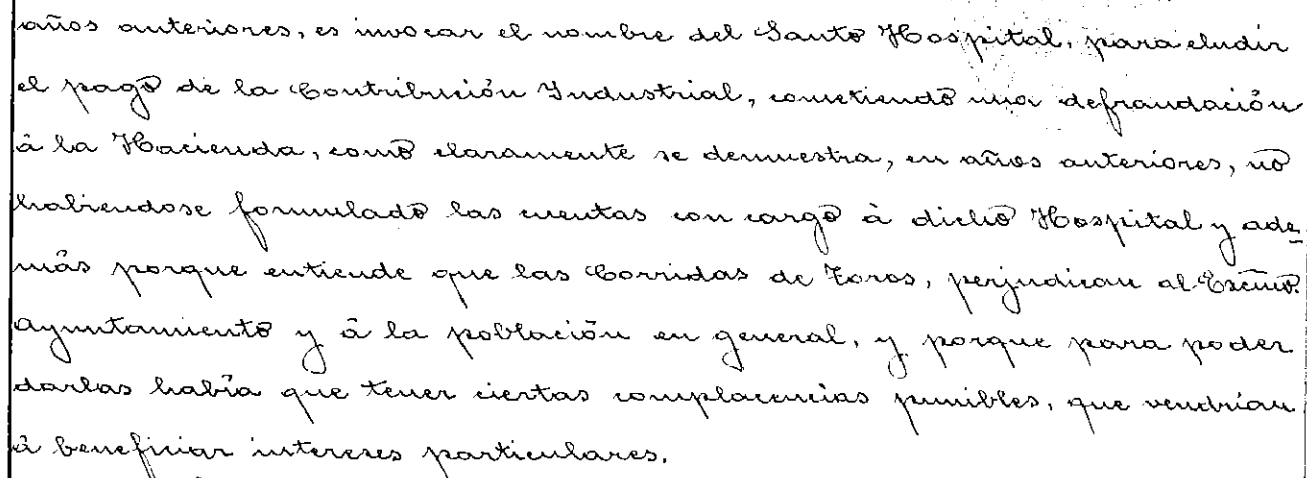 años anteriores, es invocar el nombre del Santo Hospital, para eludir
el pago de la Contribución Industrial, cometiendo una defraudación
à la Hacienda, como claramente se demuestra, en años anteriores, no
habiendose formulado las cuentas con cargo à dicho Hospital y ade
más porque entiende que las Corridas de Toros, perjudican al Excmo.
Ayuntamiento y à la población en general, y porque para poder
darlas había que tener ciertas complacencias punibles, que vendrían
à beneficiar intereses particulares.